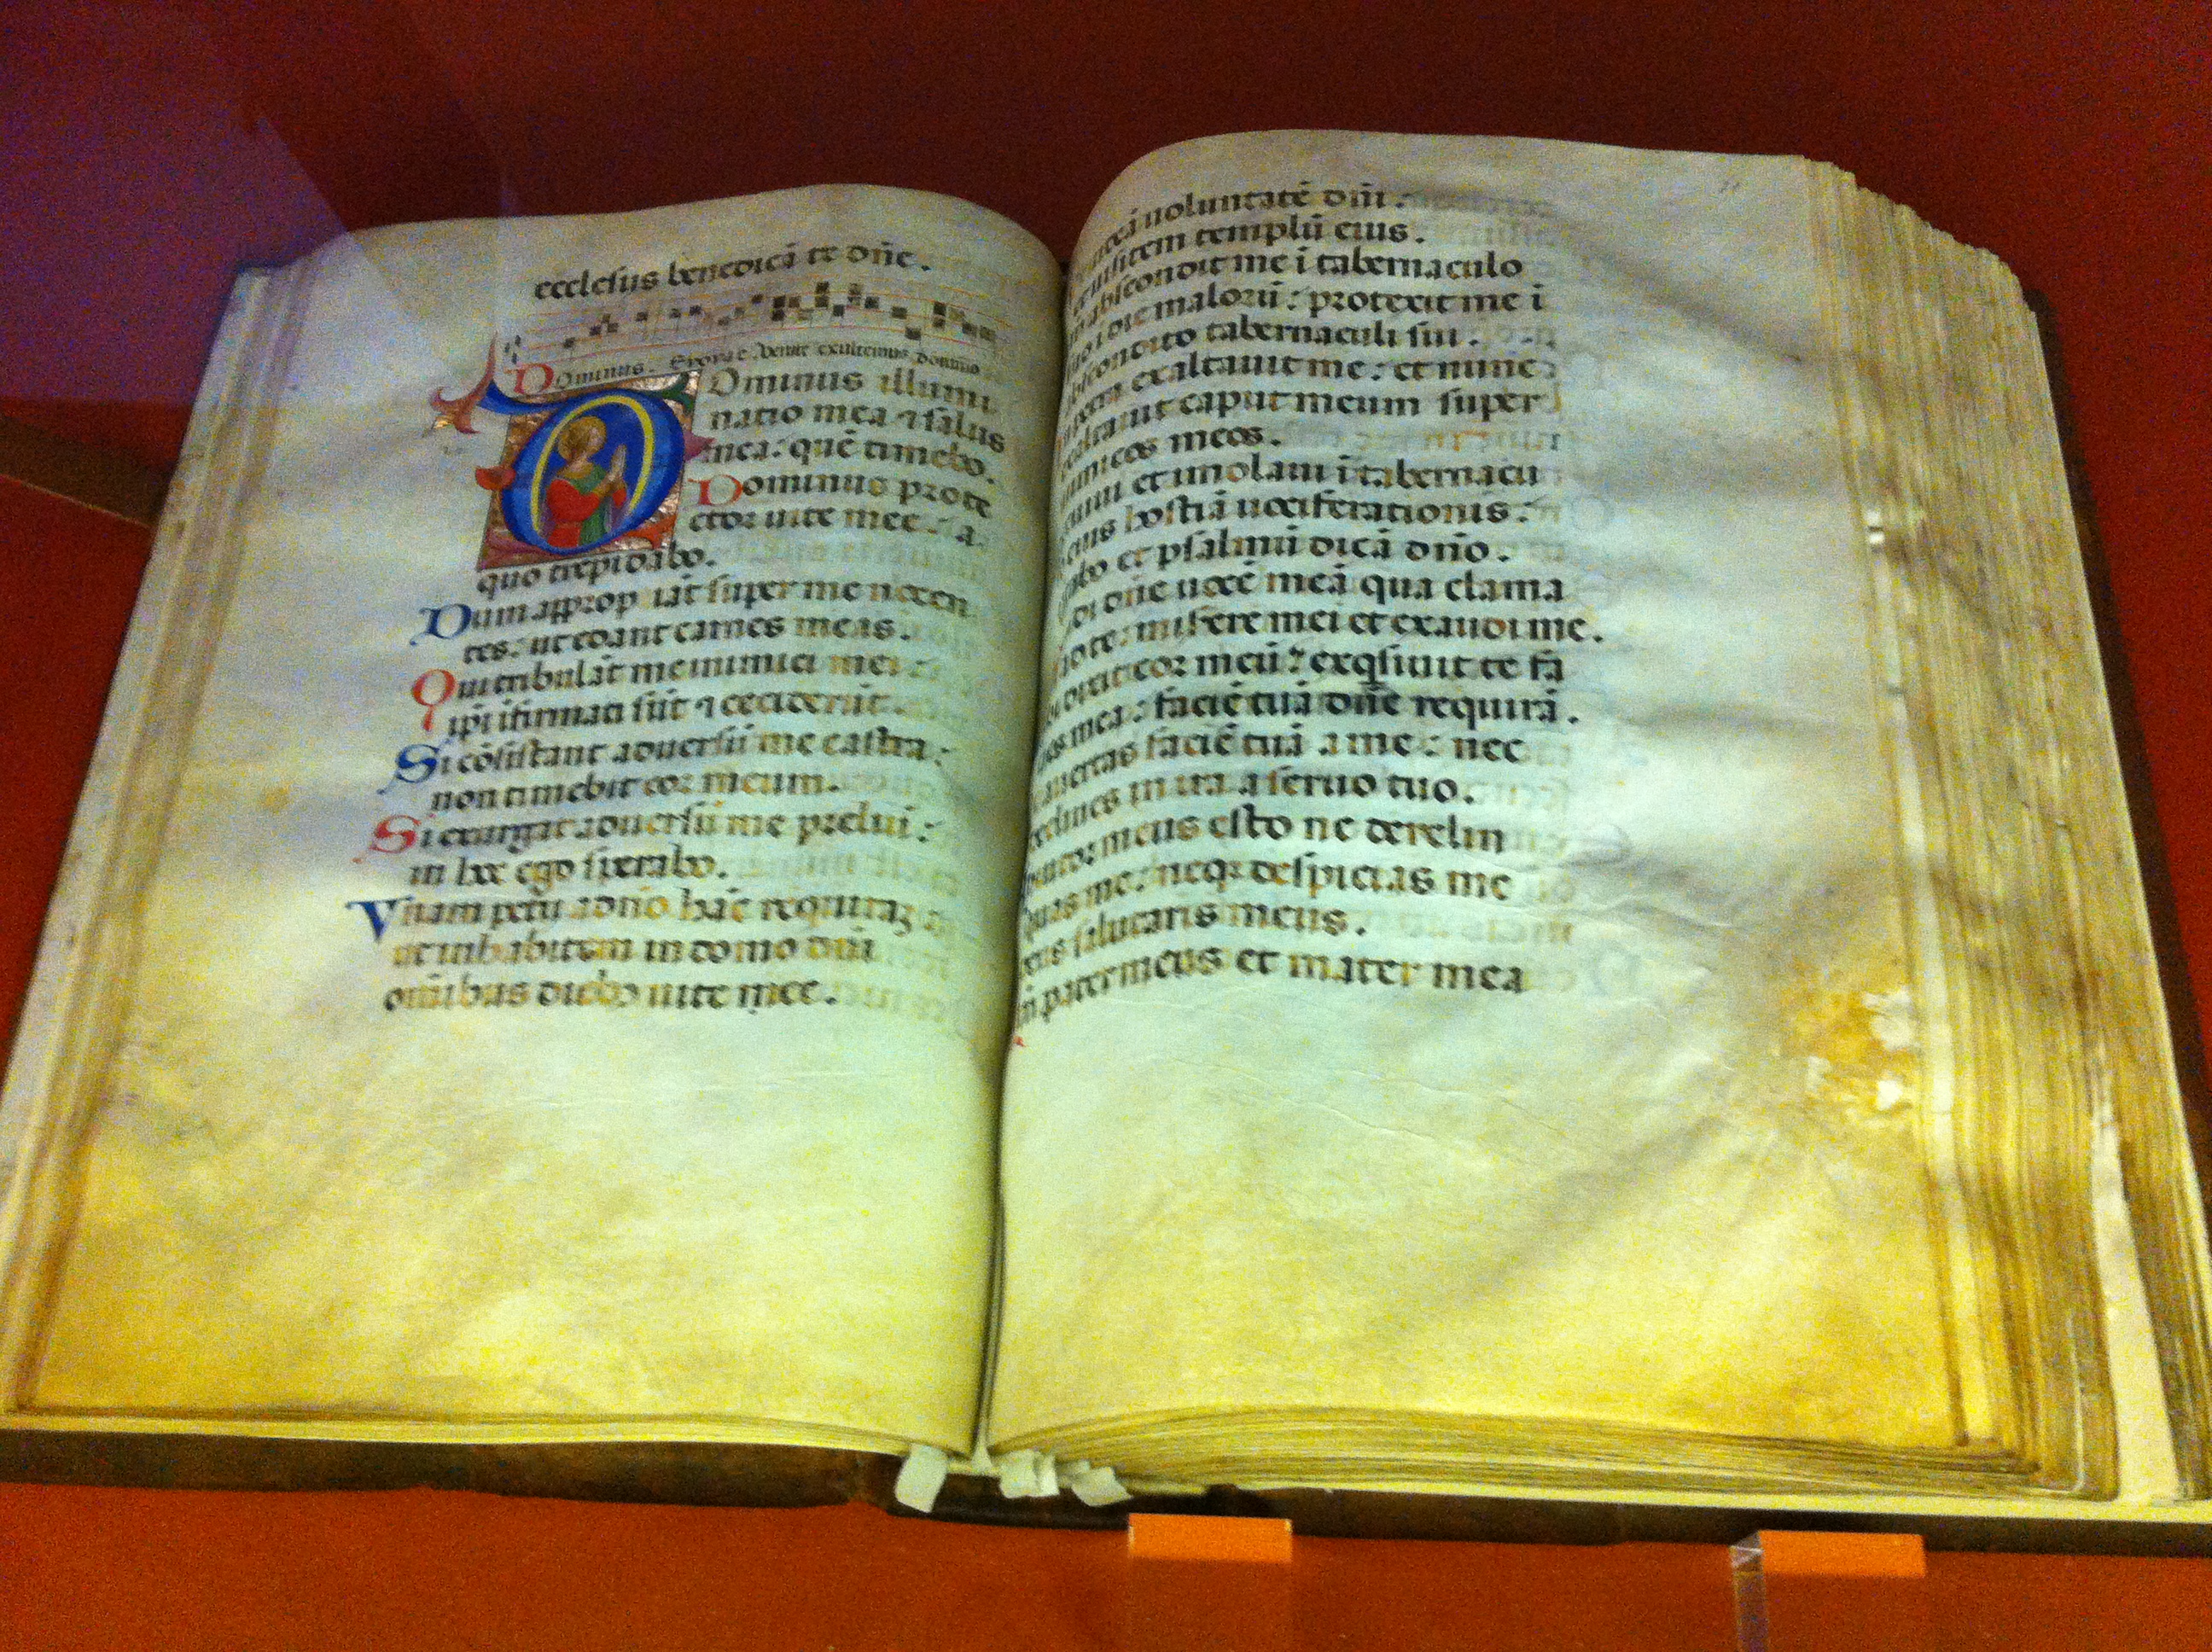 ecclesiis benedicā te dn̄e.
Dominus. Evovae. Venite exultemus Domino
Dominus illumi
natio mea ⁊ salus
mea: quē timebo.
Dominus prote
ctor uite mee: a
quo trepidabo.
Dum approp iāt super me nocen
tes: ut edant carnes meas.
Qui tribulāt me inimici mei:
ip̄i ifirmati sūt ⁊ ceciderūt.
Si cōsistant aduersū me castra:
non timebit cor meum.
Si exurgat aduersū me preliū:
in hoc ego sperabo.
Vnam petii a dn̄o hāc requirā
ut inhabitem in domo dn̄i
om̄ibus diebꝫ uite mee.
uoluntatē dn̄i:
uisitem templū eius.
abscondit me ī tabernaculo
die malorū: protexit me ī
abscondito tabernaculi sui.
exaltauit me: et nunc
exaltauit caput meum super
inimicos meos.
et imolaui ī tabernacu
eius hostiā uociferationis:
et psalmū dicā dn̄o.
dn̄e uocē meā qua clama
te: miserere mei et exaudi me.
dixit cor meū: exq̄siuit te fa
mea: faciē tuā dn̄e requirā.
auertas faciē tuā a me: nec
declines in ira a seruo tuo.
meus esto ne derelin
quas me: neqꝫ despicias me
salutaris meus.
pater meus et mater mea